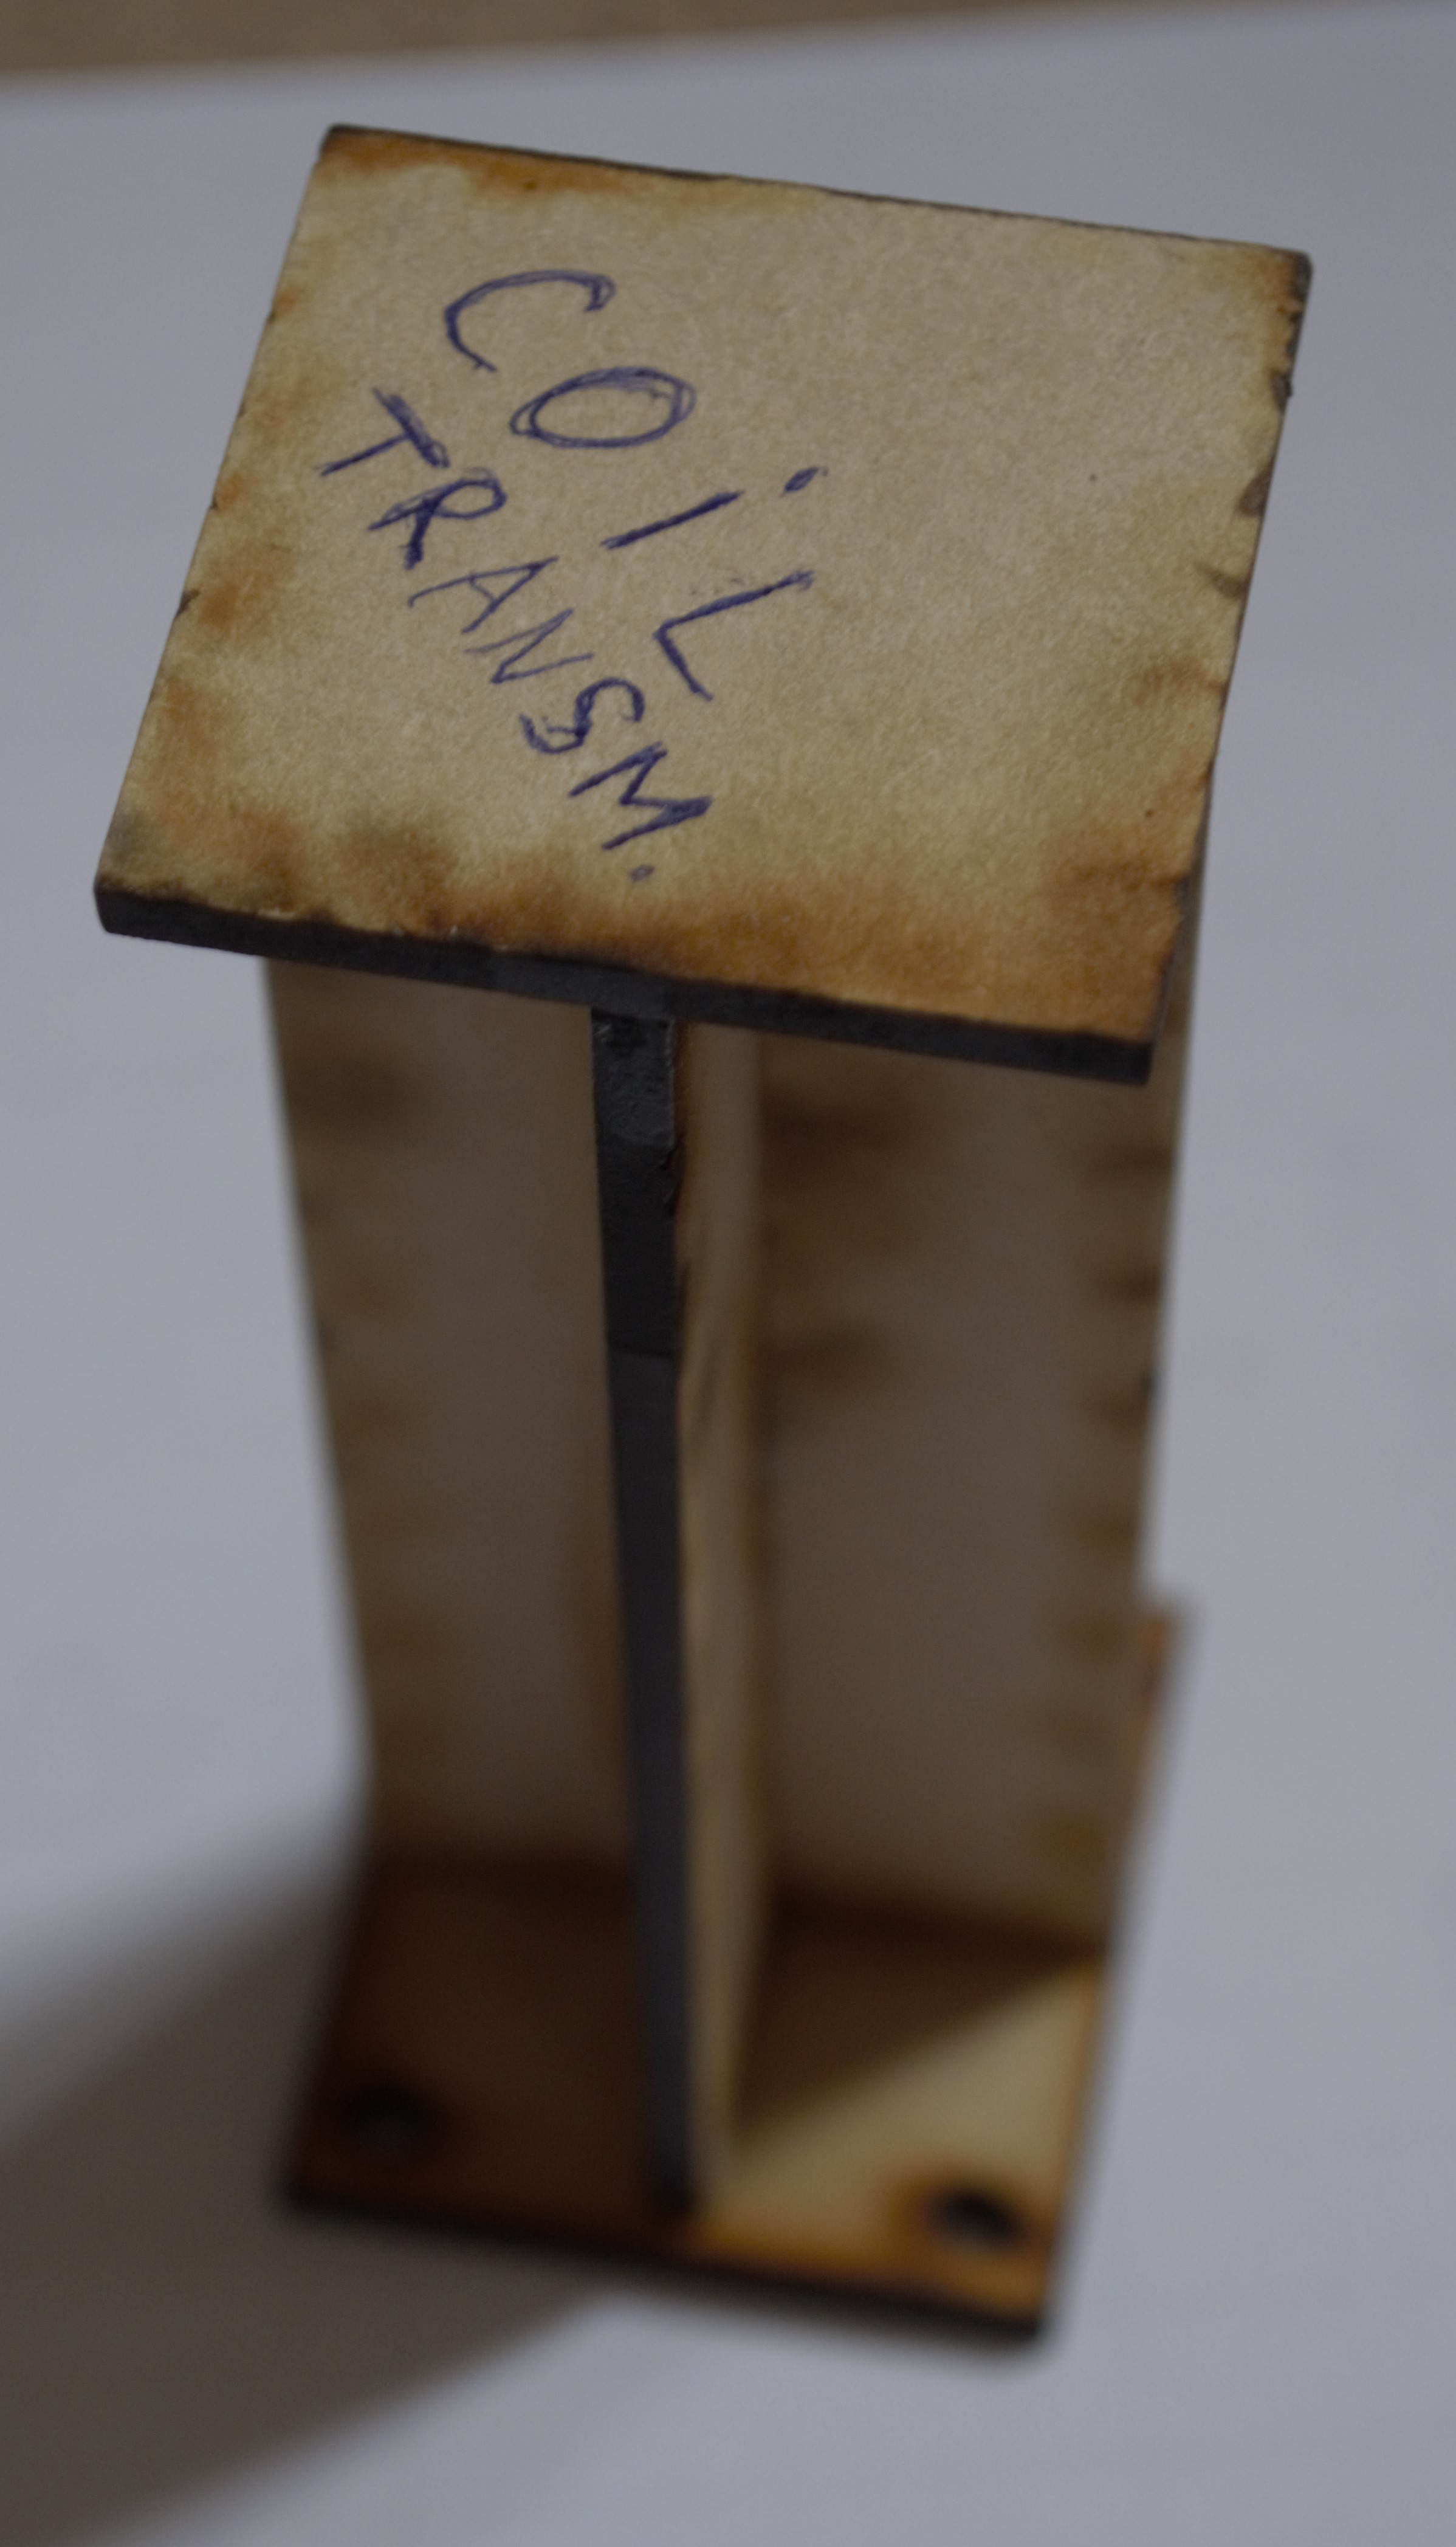 COiL
TRANSM.